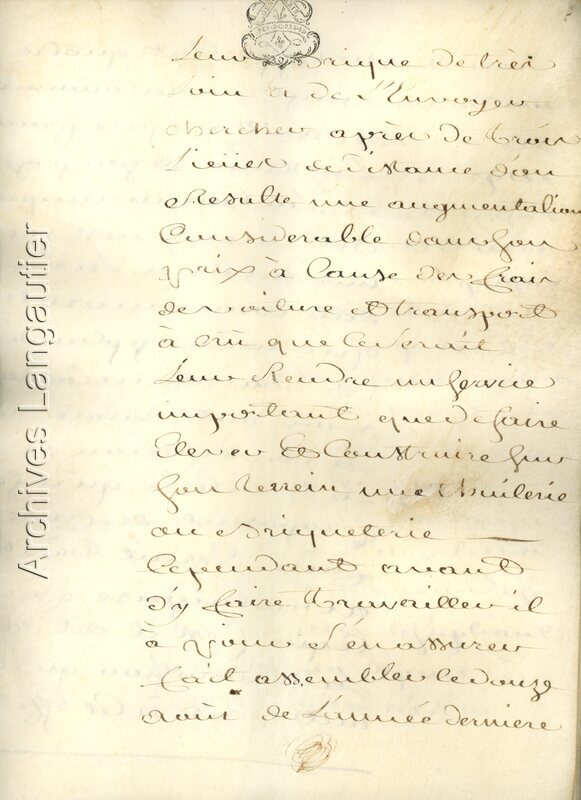 Leur Brique de très
Loin et de L'Envoyer
chercher apres de trois
Lieües de distance d'ou
Resulte une augmentation
Considerable dans son
prix à Cause des frais
de voiture et transport
à crû que ce seroit
Leur Rendre un service
important que de faire
Elever Et Construire sur
son terrein une thuilerie
ou Briqueterie
Cependant avant
d'y faire travailler il
à pour s'en assurer
fait assembler le douze
août de L'année derniere
Archives Langautier